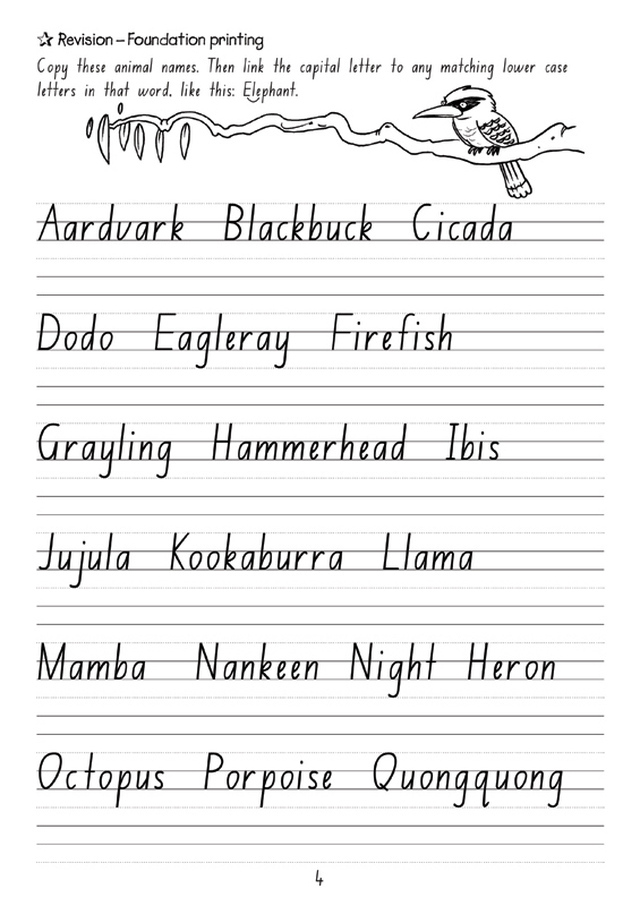 ☆ Revision – Foundation printing
Copy these animal names. Then link the capital letter to any matching lower case
letters in that word, like this: Elephant.
Aardvark Blackbuck Cicada
Dodo Eagleray Firefish
Grayling Hammerhead Ibis
Jujula Kookaburra Llama
Mamba Nankeen Night Heron
Octopus Porpoise Quongquong
4